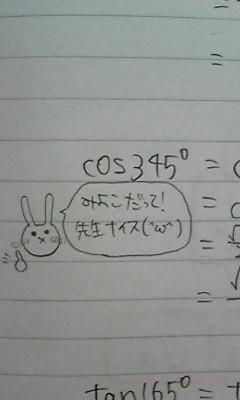 =
=
cos345° =
みよこだって!
先生ナイス(^ω^)
=
=
tan165° =